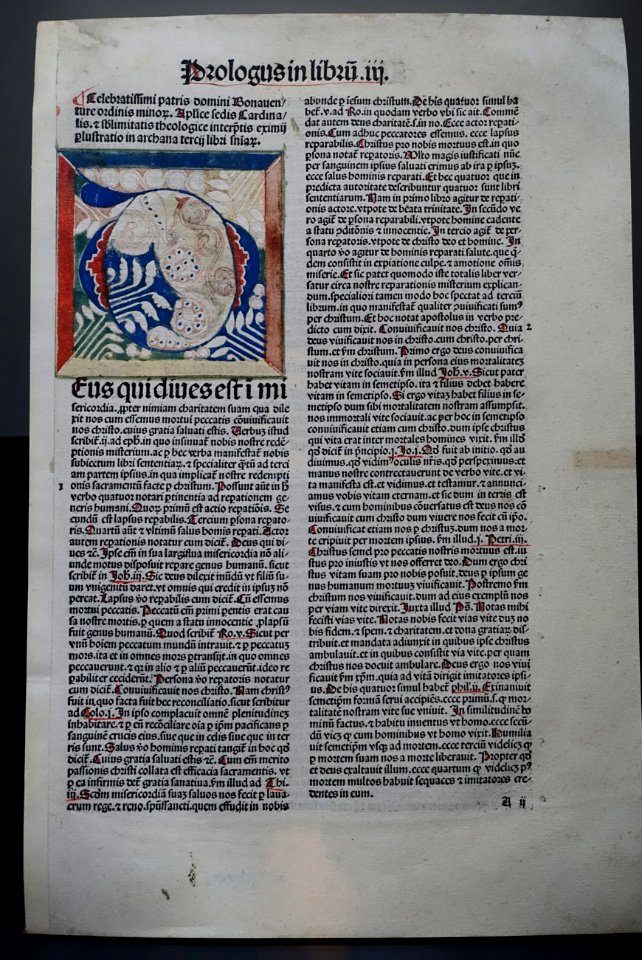 Prologus in librū. iij.
Celebratissimi patris domini Bonauen/
ture ordinis minoꝝ. Aplice sedis Cardina/
lis. ⁊ sublimitatis theologice interpretis eximij
plustratio in archana tercij libri sniaꝝ.
Eus qui diues est i mi
sericordia. ꝓpter nimiam charitatem suam qua dile
xit nos cum essemus mortui peccatis cōuiuificauit
nos christo. cuius gratia saluati estis. Uerbuꝫ istud
scribit ij. ad eph. in quo insinuat nobis nostre redē
ptionis misterium. ac ꝑ hec verba manifestat nobis
subiectum libri sententiaꝝ. ⁊ specialiter
am partem ipsius. in qua implicat nostre redempti
onis sacramentū facte ꝑ christum. Possunt aūt in
verbo quatuor notari ptinentia ad repationem ge
neris humani. Quoꝝ primū est actio repatiōis. Se
cundū est lapsus repabilis. Tercium psona repato/
ris. Quartū aūt ⁊ vltimū salus hominis repati. Actor
autem repationis notatur cum dicit. Deus qui di/
ues ⁊c. Ipse em in sua largiflua misericordia nō ali/
unde motus disposuit repare genus humanū. sicut
scribit in Joh. iij. Sic deus dilexit mūdū vt filiū su/
um vnigenitū daret. vt omnis qui credit in ipsum nō
pereat. Lapsus vo repabilis cum dicit. Cū essemus
mortui peccatis. Peccatū em primi pentis erat cau
sa nostre mortis. ꝑ quem a statu innocentie ꝓlapsū
fuit genus humanū. Quod scribit Ro. v. Sicut per
vnū hoiem peccatum mundū intrauit. ⁊ ꝑ peccatuꝫ
mors. ita ⁊ in omnes mors ptransit. in quo omnes
peccauerunt. ⁊ qꝛ in alio ⁊ ꝑ aliū peccauerūt. ideo re
pabiliter ceciderūt. Persona vo repatoris notatur
cum dicit. Conuiuificauit nos christo. Nam christꝰ
fuit in quo facta fuit hec reconciliatio. sicut scribitur
ad Colo. j. In ipso complacuit omnē plenitudineꝫ
inhabitare. ⁊ ꝑ eū recōciliare oia ꝑ ipm pacificans ꝑ
sanguinē crucis eius. siue que in celis siue que in ter
ris sunt. Salus vo hominis repati tangit in hoc qd
dicit. Cuius gratia saluati estis ⁊c. Cum em merito
passionis christi collata est efficacia sacramentis. vt
ꝑ ea infirmis det gratia sanatiua. fm illud ad Thi.
iij. Scdm misericordiā suaꝫ saluos nos fecit ꝑ laua
crum rege. ⁊ reno. spussancti. quem effudit in nobis
1
abunde ꝑ iesum christum. De his quatuor simul ha
bet. v. ad Ro. in quodam verbo vbi sic ait. Commē
dat autem deus charitatē. s. in no. Ecce actor repati
onis. Cum adhuc peccatores essemus. ecce lapsus
reparabilis. Christus pro nobis mortuus est. in quo
psona notat repatoris. Multo magis iustificati nūc
per sanguinem ipsius saluati erimus ab ira ꝑ ipsuꝫ.
ecce salus hominis reparati. Et hec quatuor que in
predicta autoritate describuntur quatuor sunt libri
sententiarum. Nam in primo libro agitur de repati
onis actore. vtpote de beata trinitate. In secūdo ve
ro agit de psona reparabili. vtpote homine cadente
a statu ꝯditōnis ⁊ innocentie. In tercio agit de per/
sona repatoris. vtpote de christo deo et homine. In
quarto vo agitur de hominis reparati salute. que q
dem consistit in expiatione culpe. ⁊ amotione omīs
miserie. Et sic patet quomodo iste totalis liber ver/
satur circa nostre reparationis misterium explican/
dum. specialiori tamen modo hoc spectat ad terciū
librum. in quo manifestat qualiter ꝯuiuificati sumꝰ
per christum. Et hoc notat apostolus in verbo pre/
dicto cum dixit. Conuiuificauit nos christo. Quia 2
deus viuificauit nos in christo. cum christo. per chri/
stum. et fm christum. Primo ergo deus conuiuifica
uit nos in christo. quia in persona eius mortalitateꝫ
nostram vite sociauit. fm illud Joh. v. Sicut pater
habet vitam in semetipso. ita ⁊ filius debet habere
vitam in semetipso. Si ergo vitaꝫ habet filius in se/
metipso dum sibi mortalitatem nostram assumpsit.
nos immortali vite sociauit. ac per hoc in semetipso
conuiuificauit etiam cum christo. dum ipse christus
qui vita erat inter mortales homines vixit. fm illd
qd dicit in pncipio. j. Jo. j. Qd fuit ab initio. qd au
diuimus. qd vidimꝰ oculis nris. qd perspeximus. et
manus nostre contrectauerunt de verbo vite. et vi/
ta manifesta est. et vidimus. et testamur. ⁊ annunci/
amus vobis vitam eternam. et sic dum in terris est
visus. ⁊ cum hominibus cōuersatus est deus nos cō
uiuificauit cum christo dum viuere nos fecit cū ipso.
Conuiuificauit etiam nos ꝑ christuꝫ. dum nos a mor/
te eripiuit per mortem ipsius. fm illud. j. Petri. iij.
Christus semel pro peccatis nostris mortuus est. iu
stus pro iniustis vt nos offerret deo. Dum ergo chri
stus vitam suam pro nobis posuit. deus ꝑ ipsum ge
nus humanum mortuuꝫ viuificauit. Postremo fm
christum nos viuificauit. dum ad eius exemplū nos
per viam vite direxit. Juxta illud Ps. Notas mihi
fecisti vias vite. Notas nobis fecit vias vite duꝫ no
bis fidem. ⁊ spem. ⁊ charitatem. et dona gratiaꝝ dis/
tribuit. et mandata adiunxit in quibus ipse christus
ambulauit. et in quibus consistit via vite. per quam
christus nos docuit ambulare. Deus ergo nos viui
ficauit fm xpm. quia ad vitā dirigit imitatores ipsi/
us. De his quatuor simul habet phil. ij. Exinaniuit
semetipm formā serui accipiēs. ecce primū. s. qꝫ mor
talitatē nostram vite sue vniuit. In similitudinē ho
minū factus. ⁊ habitu inuentus vt homo. ecce secū/
dū vicꝫ qꝫ cum hominibus vt homo vixit. Humilia
uit semetipm vsqꝫ ad mortem. ecce terciū videlicꝫ qꝫ
ꝑ mortem suam nos a morte liberauit. Propter qd
et deus exaltauit illum. ecce quartum qꝫ videlicꝫ pꝰ
mortem multos habuit sequaces ⁊ imitatores cre/
dentes in eum.
A ij